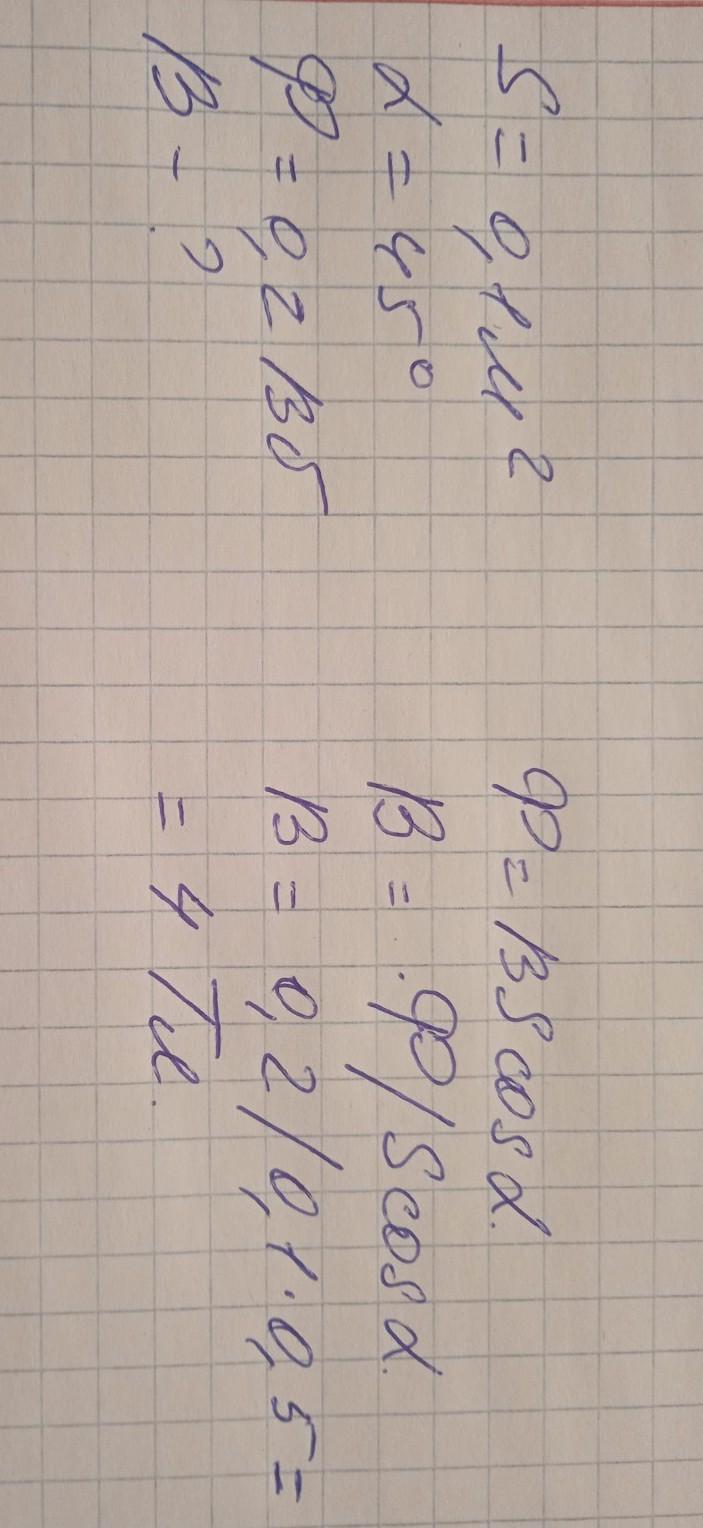 S = 0,1 м²
α = 45°
Ф = 0,2 Вб
В - ?
Ф = ВS cos α.
В = Ф/S cos α.
В = 0,2/0,1·0,5 =
= 4 Тл.